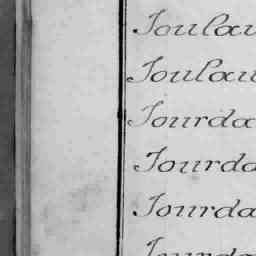 Joulau
Joulau
Jourda
Jourda
Jourda
Jourda